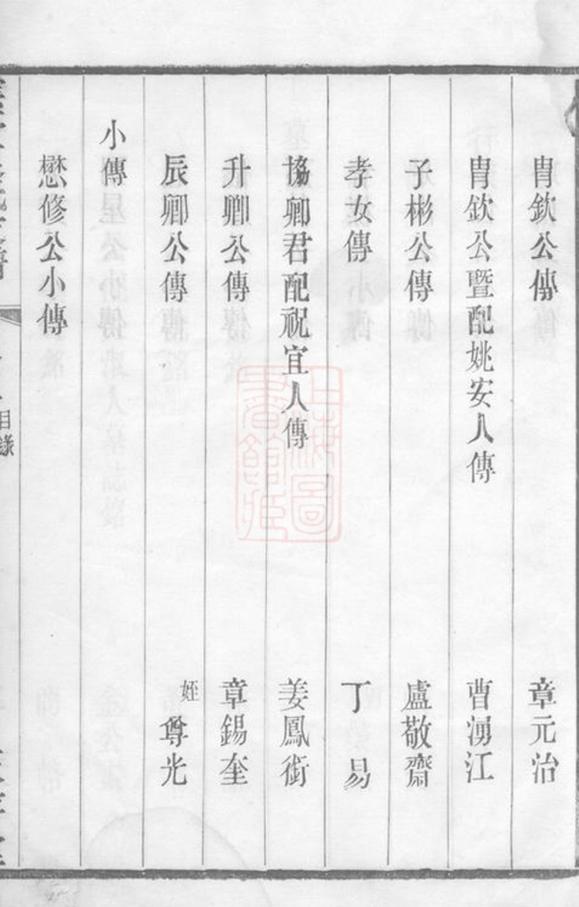 冑欽公傳 章元治
冑欽公暨配姚安人傳 曹湧江
子彬公傳 盧敬齋
孝女傳 丁易
協卿君配祝宜人傳 姜鳳銜
升卿公傳 章錫奎
辰卿公傳 姪尊光
小傳
懋修公小傳
目錄